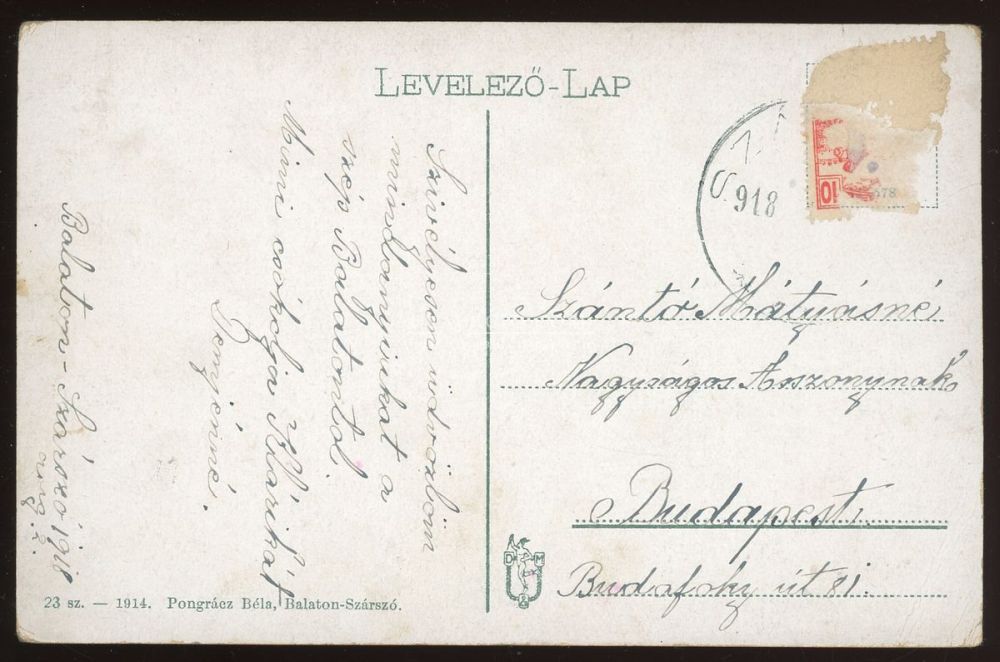 LEVELEZŐ-LAP
918
10
578
Szivélyesen üdvözlöm
mindanyiukat a
szép Balatontól.
Mimi csókolja Klárikát
Balaton-Szárszó 1918
aug. 2.
Szántó Mátyásné
Nagyságos Asszonynak
Budapest.
Budafoky út 81.
D M
23 sz. — 1914. Pongrácz Béla, Balaton-Szárszó.